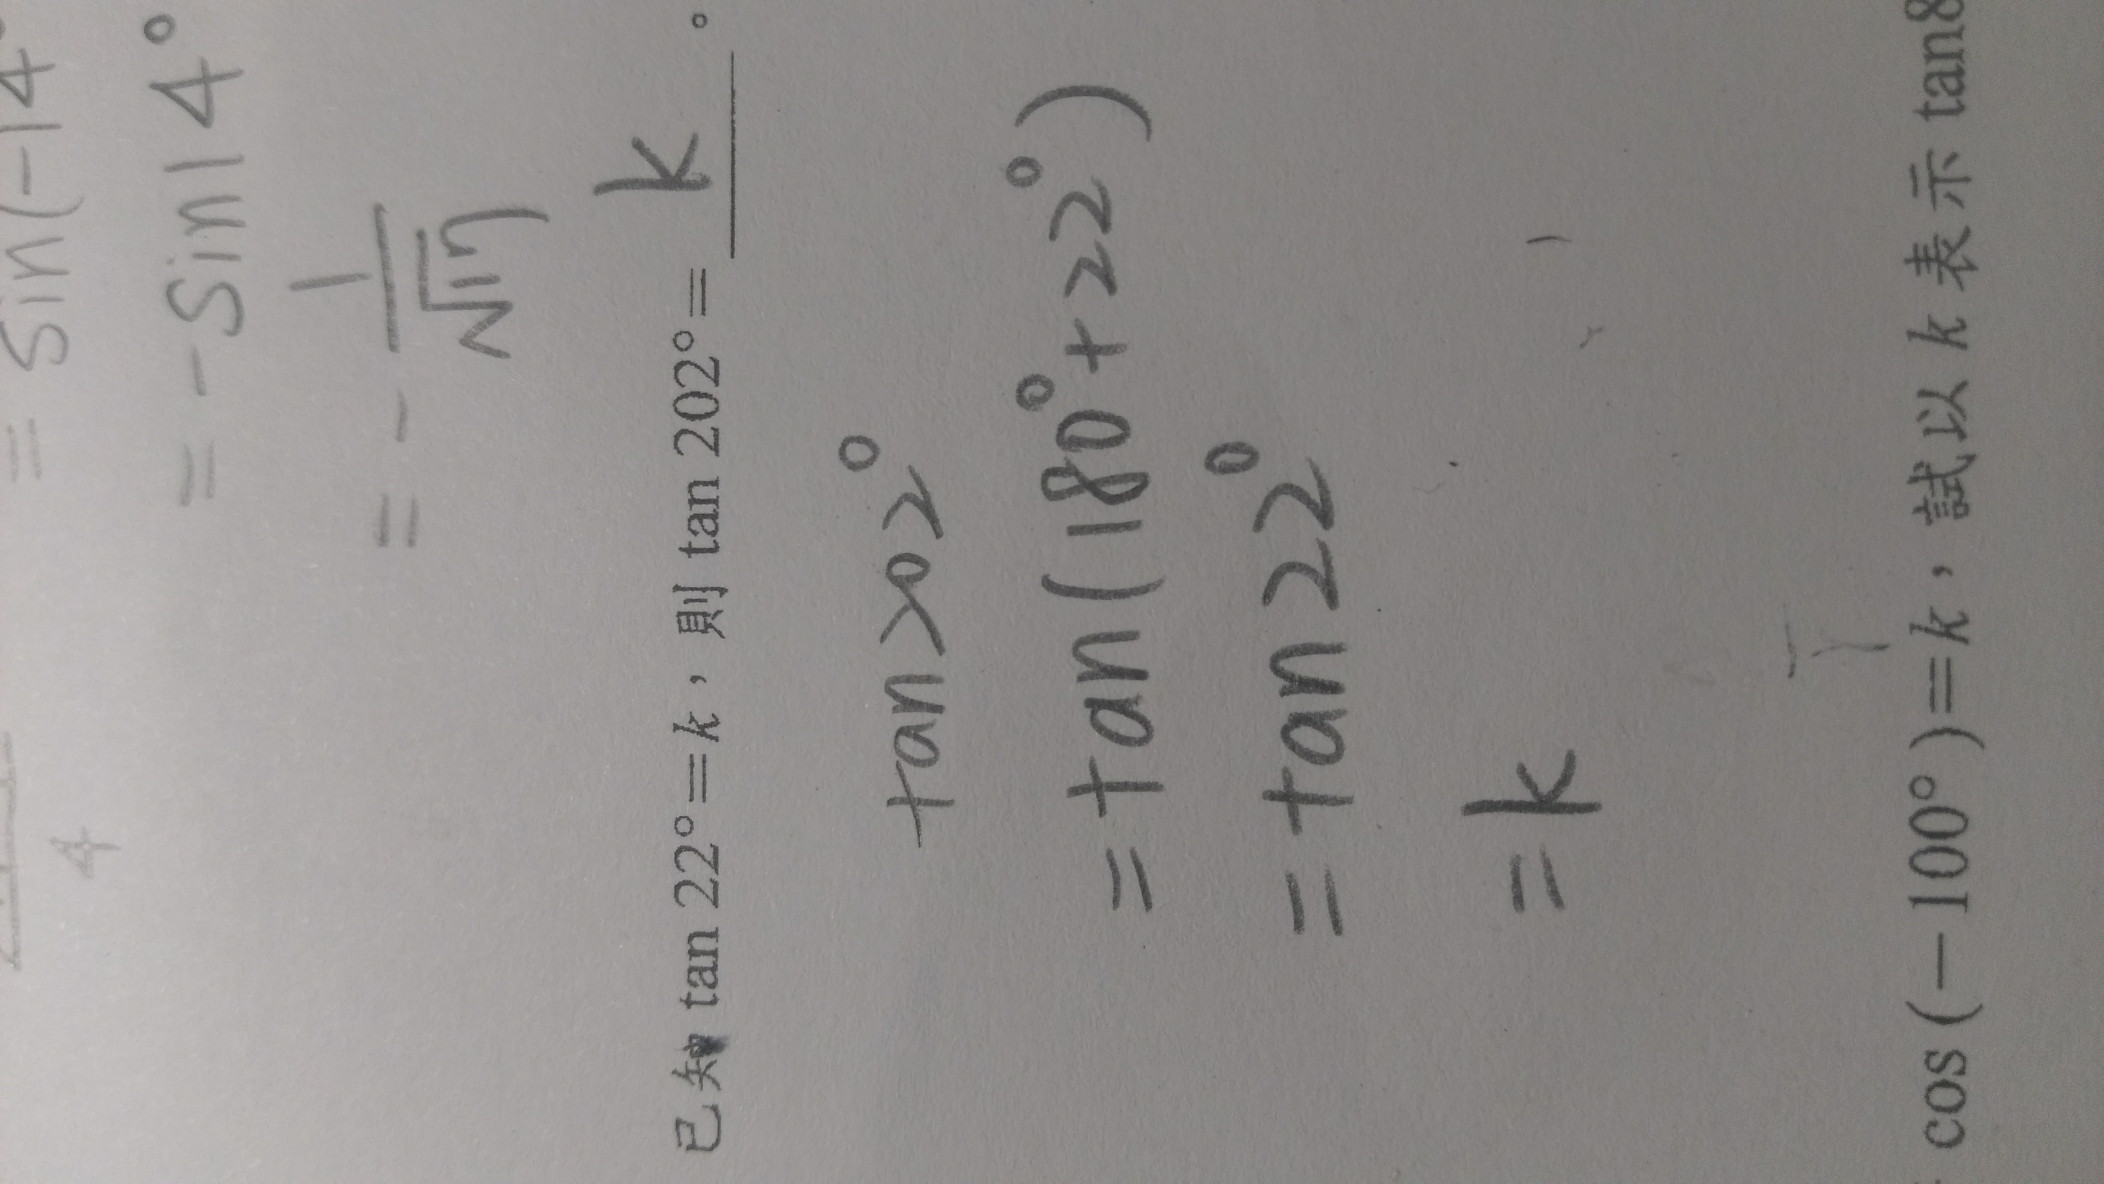 = sin(-14°
4
= -sin14°
= - 1/√17
已知 tan 22°=k，則 tan 202°= k 。
tan202°
= tan(180°+22°)
= tan22°
= k
cos (-100°)=k，試以 k 表示 tan8